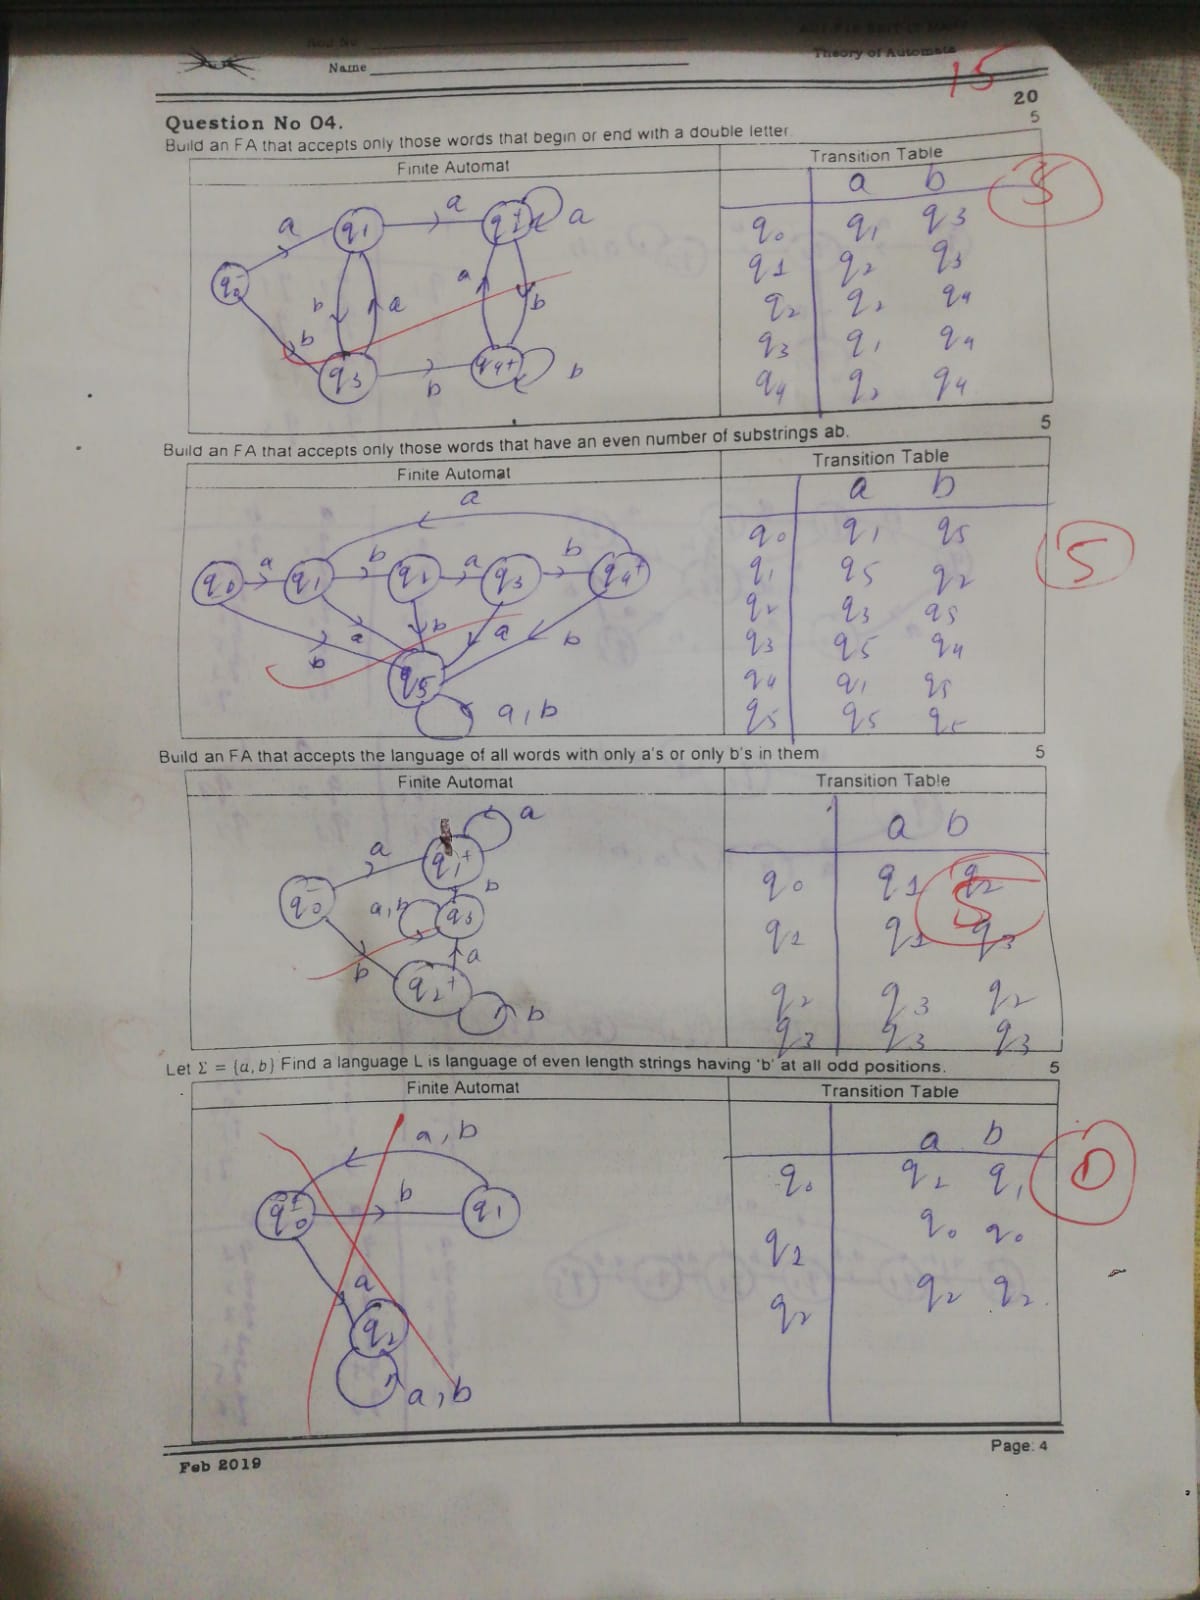 Roll No
Name
Theory of Automata
15
20
Question No 04.
5
Build an FA that accepts only those words that begin or end with a double letter.
Finite Automat
Transition Table
a b
5
q0 q1 q3
q1 q2 q3
q2 q2 q4
q3 q1 q4
q4 q2 q4
a
q1
a
q2+
a
q0-
b
a
a
b
b
q3
b
q4+
b
Build an FA that accepts only those words that have an even number of substrings ab.
5
Finite Automat
Transition Table
a b
a
q0 q1 q5
q1 q5 q2
q2 q3 q5
q3 q5 q4
q4 q1 q5
q5 q5 q5
5
q0 a q1 b q2 a q3 b q4+
b a b a b
q5
a,b
Build an FA that accepts the language of all words with only a's or only b's in them
5
Finite Automat
Transition Table
a b
q0 q1 q2
q1 q1 q3
q2 q3 q2
q3 q3 q3
5
a
a
q1+
b
q0-
a,b
q3
b
a
q2+
b
Let Σ = {a, b} Find a language L is language of even length strings having 'b' at all odd positions.
5
Finite Automat
Transition Table
a b
q0 q2 q1
q1 q0 q0
q2 q2 q2
0
a,b
q0±
b
q1
a
q2
a,b
Feb 2019
Page: 4